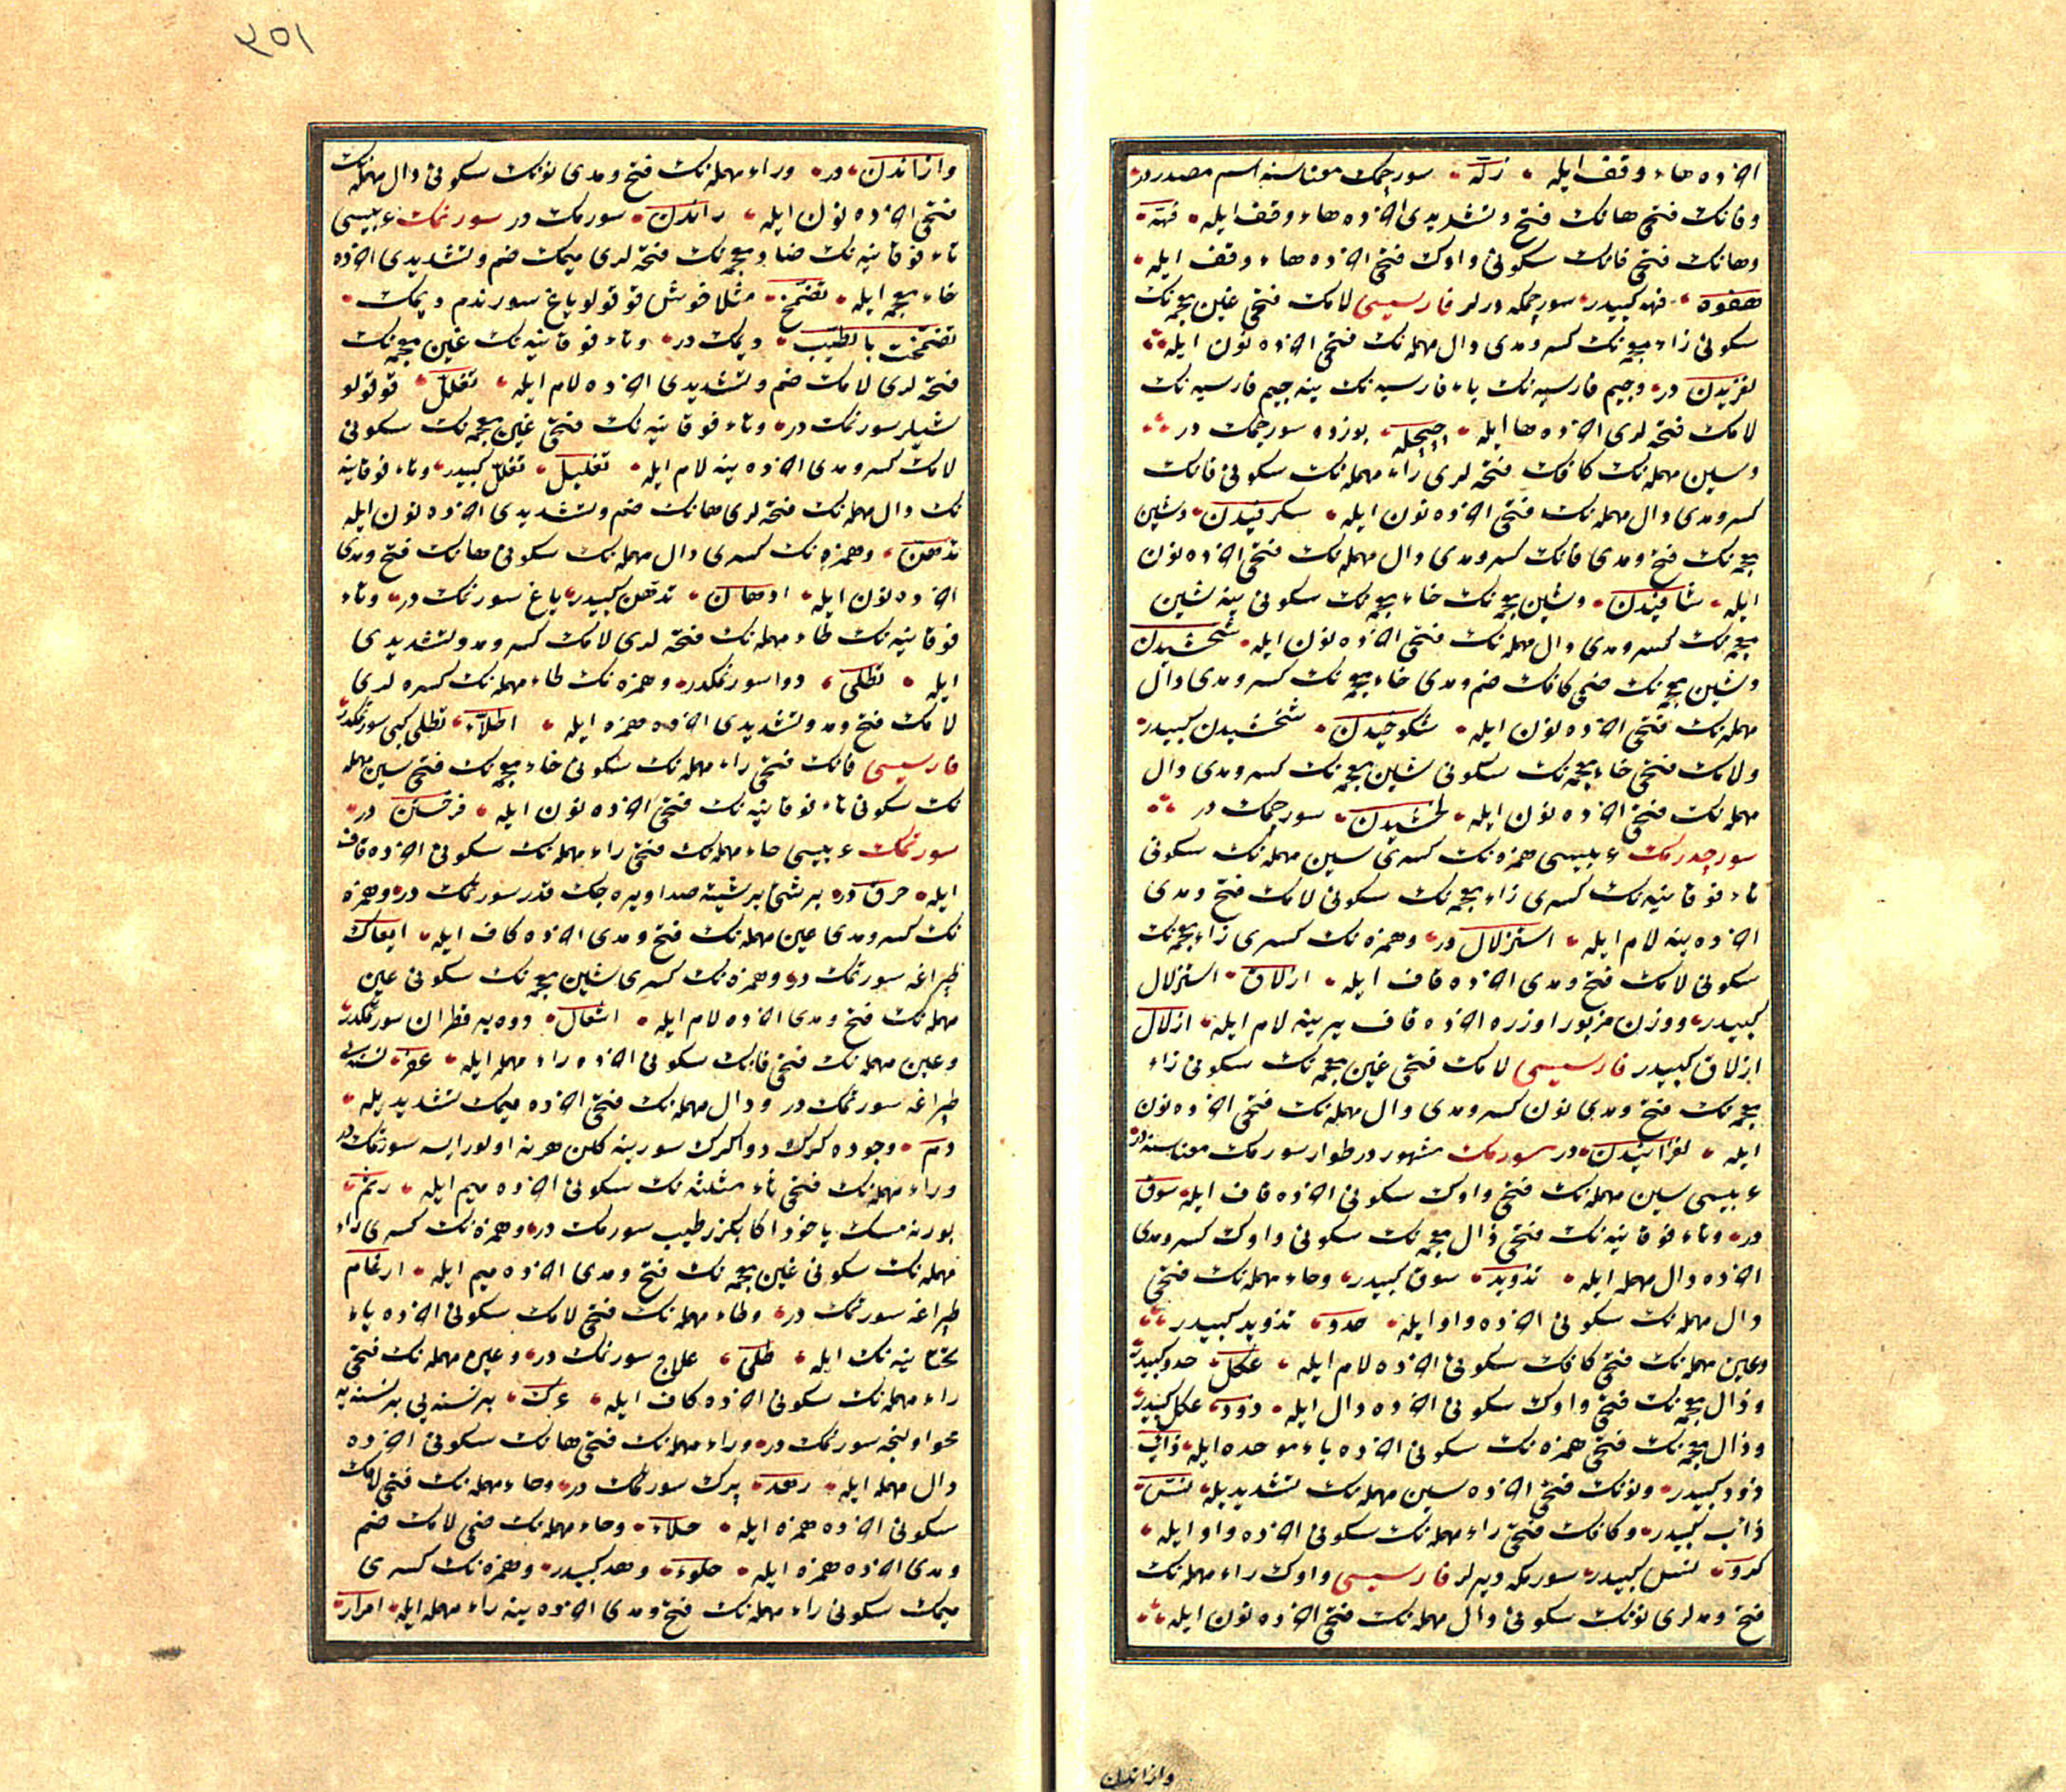 آخرده هاء وقف ايله زلّه سورجمك معناسنه اسم مصدردر
وفانك فتحى هانك فتح وتشديدى آخرده هاء وقف ايله فهّه
وهانك فتحى فانك سكونى واوك فتحى آخرده هاء وقف ايله
هفوه فهه كبيدر سورجمكه درلر فارسيسى لامك فتحى غين معجمه نك
سكونى زاء معجمه نك كسر ومدى دال مهمله نك فتحى آخرده نون ايله
لغزيدن در وجيم فارسيه نك ياء فارسيه نك ينه جيم فارسيه نك
لامك فتحه لرى آخرده ها ايله چپچله بوزده سورجمك در
وسين مهمله نك كافك فتحه لرى راء مهمله نك سكونى فانك
كسر ومدى دال مهمله نك فتحى آخرده نون ايله سكرفيدن وشين
معجمه نك فتح ومدى فانك كسر ومدى دال مهمله نك فتحى آخرده نون
ايله شافيدن وشين معجمه نك خاء معجمه نك سكونى ينه شين
معجمه نك كسر ومدى دال مهمله نك فتحى آخرده نون ايله شخشيدن
وشين معجمه نك ضمى كافك ضم ومدى خاء معجمه نك كسر ومدى دال
مهمله نك فتحى آخرده نون ايله شكوخيدن شخشيدن كبيدر
ولامك فتحى خاء معجمه نك سكونى شين معجمه نك كسر ومدى دال
مهمله نك فتحى آخرده نون ايله لخشيدن سورجمك در
سورجدرمك عربيسى همزه نك كسرى سين مهمله نك سكونى
تاء فوقانيه نك كسرى زاء معجمه نك سكونى لامك فتح ومدى
آخرده ينه لام ايله استزلال در وهمزه نك كسرى زاء معجمه نك
سكونى لامك فتح ومدى آخرده قاف ايله ازلاق استزلال
كبيدر ووزن مزبور اوزره آخرده قاف يرينه لام ايله ازلال
ازلاق كبيدر فارسيسى لامك فتحى غين معجمه نك سكونى زاء
معجمه نك فتح ومدى نون كسر ومدى دال مهمله نك فتحى آخرده نون
ايله لغزانيدن در سورمك مشهوردر طوار سورمك معناسنه در
عربيسى سين مهمله نك فتحى واوك سكونى آخرده قاف ايله سوق
در وتاء فوقانيه نك فتحى ذال معجمه نك سكونى واوك كسر ومدى
آخرده دال مهمله ايله تذويد سوق كبيدر وحاء مهمله نك فتحى
دال مهمله نك سكونى آخرده واو ايله حدو تذويد كبيدر
وعين مهمله نك فتحى كافك سكونى آخرده لام ايله عكل حدو كبيدر
وذال معجمه نك فتحى واوك سكونى آخرده دال ايله ذود عكل كبيدر
وذال معجمه نك فتحى همزه نك سكونى آخرده باء موحده ايله ذأب
ذود كبيدر ونونك فتحى آخرده سين مهمله نك تشديديله نسّ
ذأب كبيدر وكافك فتحى راء مهمله نك سكونى آخرده واو ايله
كرو نسّ كبيدر سورمكه ديرلر فارسيسى واوك راء مهمله نك
فتح ومدلرى نونك سكونى دال مهمله نك فتحى آخرده نون ايله
وازاندن
٣٥١
وازاندن در وراء مهمله نك فتح ومدى نونك سكونى دال مهمله نك
فتحى آخرده نون ايله راندن سورمك در سورنمك عربيسى
تاء فوقانيه نك ضاد معجمه نك فتحه لرى ميمك ضم وتشديدى آخرده
خاء معجمه ايله تضمّخ مثلا خوش قوقولو ياغ سورندم ديمك
تضمّخت بالطيب ديمك در وتاء فوقانيه نك غين معجمه نك
فتحه لرى لامك ضم وتشديدى آخرده لام ايله تغلّل قوقولو
شيلر سورنمك در وتاء فوقانيه نك فتحى غين معجمه نك سكونى
لامك كسر ومدى آخرده ينه لام ايله تغليل تغلّل كبيدر وتاء فوقانيه
نك دال مهمله نك فتحه لرى هانك ضم وتشديدى آخرده نون ايله
تدهّن وهمزه نك كسرى دال مهمله نك سكونى هانك فتح ومدى
آخرده نون ايله ادهان تدهّن كبيدر ياغ سورنمك در وتاء
فوقانيه نك طاء مهمله نك فتحه لرى لامك كسر ومد وتشديدى
ايله تطلّى دوا سورنمكدر وهمزه نك طاء مهمله نك كسره لرى
لامك فتح ومد وتشديدى آخرده همزه ايله اطلاء تطلّى كبى سورنمكدر
فارسيسى فانك فتحى راء مهمله نك سكونى خاء معجمه نك فتحى سين مهمله
نك سكونى تاء فوقانيه نك فتحى آخرده نون ايله فرخستن در
سورتمك عربيسى حاء مهمله نك فتحى راء مهمله نك سكونى آخرده قاف
ايله حرق در بر شئ بر شيئه صدا ويره جك قدر سورتمك در وهمزه
نك كسر ومدى عين مهمله نك فتح ومدى آخرده كاف ايله ايعاك
طپراغه سورتمك در وهمزه نك كسرى شين معجمه نك سكونى عين
مهمله نك فتح ومدى آخرده لام ايله اشعال دوه يه قطران سورتمكدر
وعين مهمله نك فتحى فانك سكونى آخرده راء مهمله ايله عفر نسنه يى
طپراغه سورتمك در ودال مهمله نك فتحى آخرده ميمك تشديديله
دمّ وجوده كرك دوا كرك سورينه كلن هر نه اولورايسه سورتمك در
وراء مهمله نك فتحى ثاء مثلثه نك سكونى آخرده ميم ايله رثم
بورنه مسك ياخود اكا بكزر طيب سورمك در وهمزه نك كسرى راء
مهمله نك سكونى غين معجمه نك فتح ومدى آخرده ميم ايله ارغام
طپراغه سورتمك در وطاء مهمله نك فتحى لامك سكونى آخرده ياء
تحتانيه نك ايله طلى علاج سورتمك در وعين مهمله نك فتحى
راء مهمله نك سكونى آخرده كاف ايله عرك بر نسنه يى بر نسنه يه
محو اولنجه سورتمك در وراء مهمله نك فتحى هانك سكونى آخرده
دال مهمله ايله رهد پرك سورتمك در وحاء مهمله نك فتحى لامك
سكونى آخرده همزه ايله حلاء وحاء مهمله نك ضمى لامك ضم
ومدى آخرده همزه ايله حلوء رهد كبيدر وهمزه نك كسرى
ميمك سكونى راء مهمله نك فتح ومدى آخرده ينه راء مهمله ايله امرار